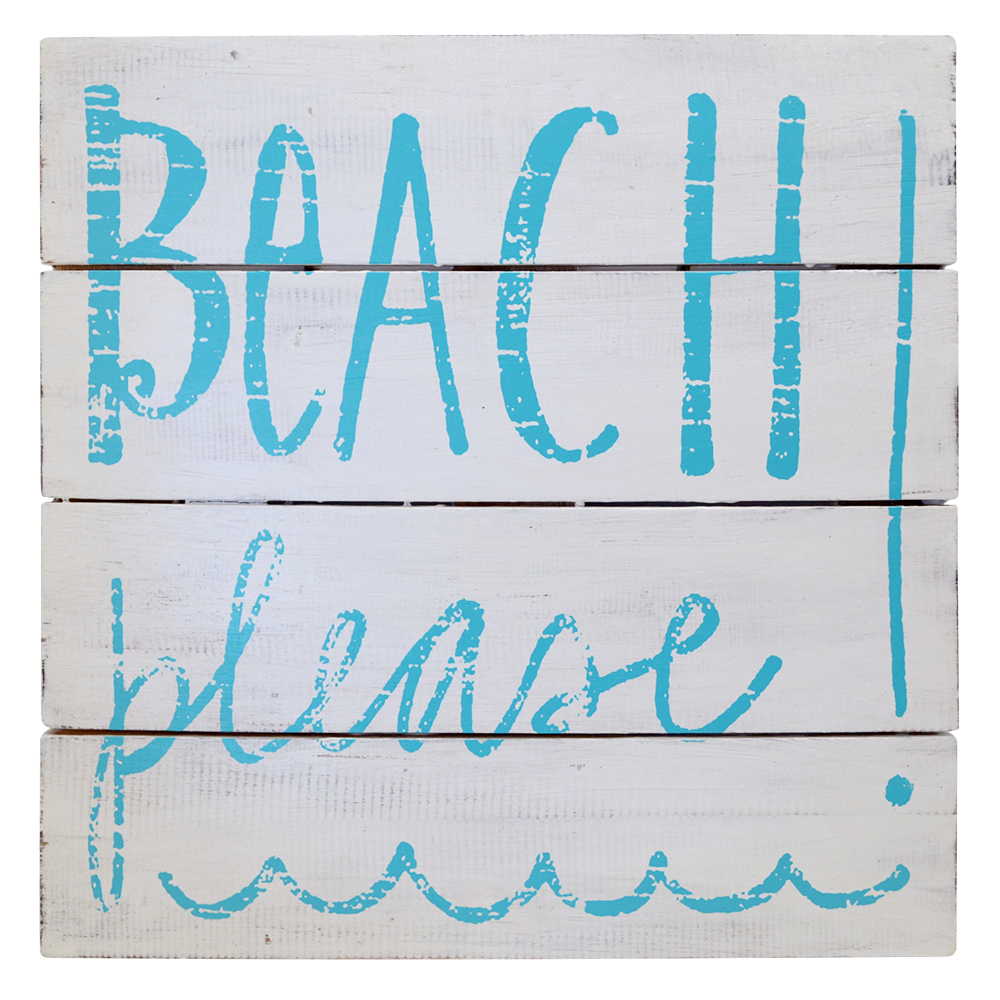 BEACH!
please